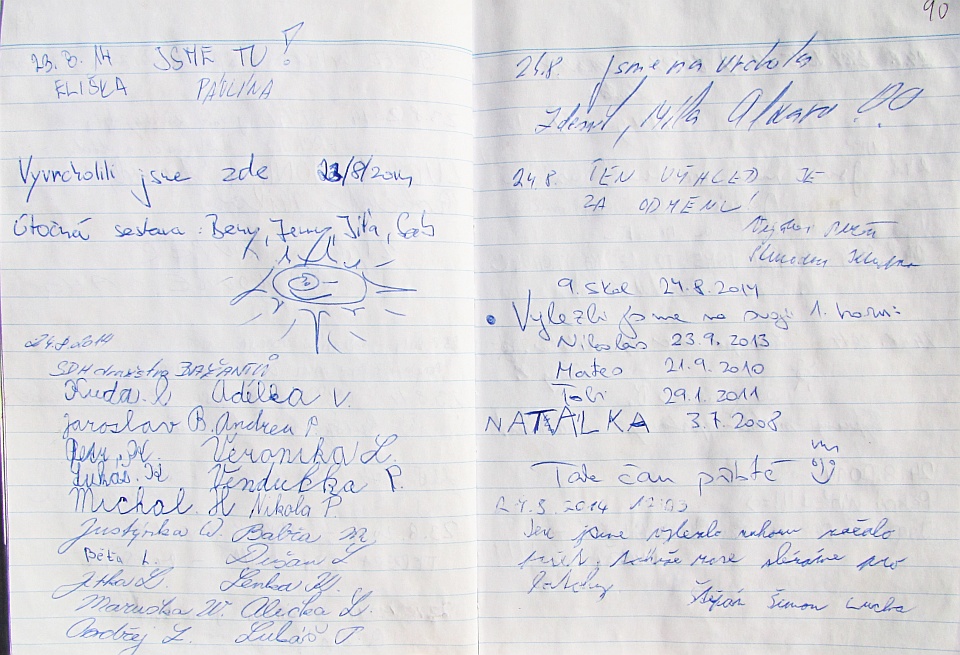 23.8.14 JSME TU!
ELIŠKA PAVLÍNA
Vyvrcholili jsme zde 23/8/2014
Útočná sestava: Beny, Jenny, Jiťa, Gab
24.8.2014
SDH družstvo BAŽANTII
Kuda. L Adélka V.
Jaroslav B. Andrea P
Petr. K. Veronika L.
Lukáš. K Vendulka P.
Michal. H Nikola P.
Justýnka W. Babča M.
Běta L. Dušan L
Jitka L. Lenka M.
Maruška W. Alička L.
Ondřej Z. Lukáš P.
90
24.8. jsme na vrcholu
Zdeněk, Míla
24.8. TEN VÝHLED JE
ZA ODMĚNU!
9. Skol 24.8.2014
• Vylezli jsme na svoji 1. horu:
Nikolas 23.9.2013
Mateo 21.9.2010
Tobi 29.1.2011
NATÁLKA 3.7.2008
Tak čau příště
24.8.2014
Jen jsme vylezli nahoru začalo
pro
Štěpán Šimon